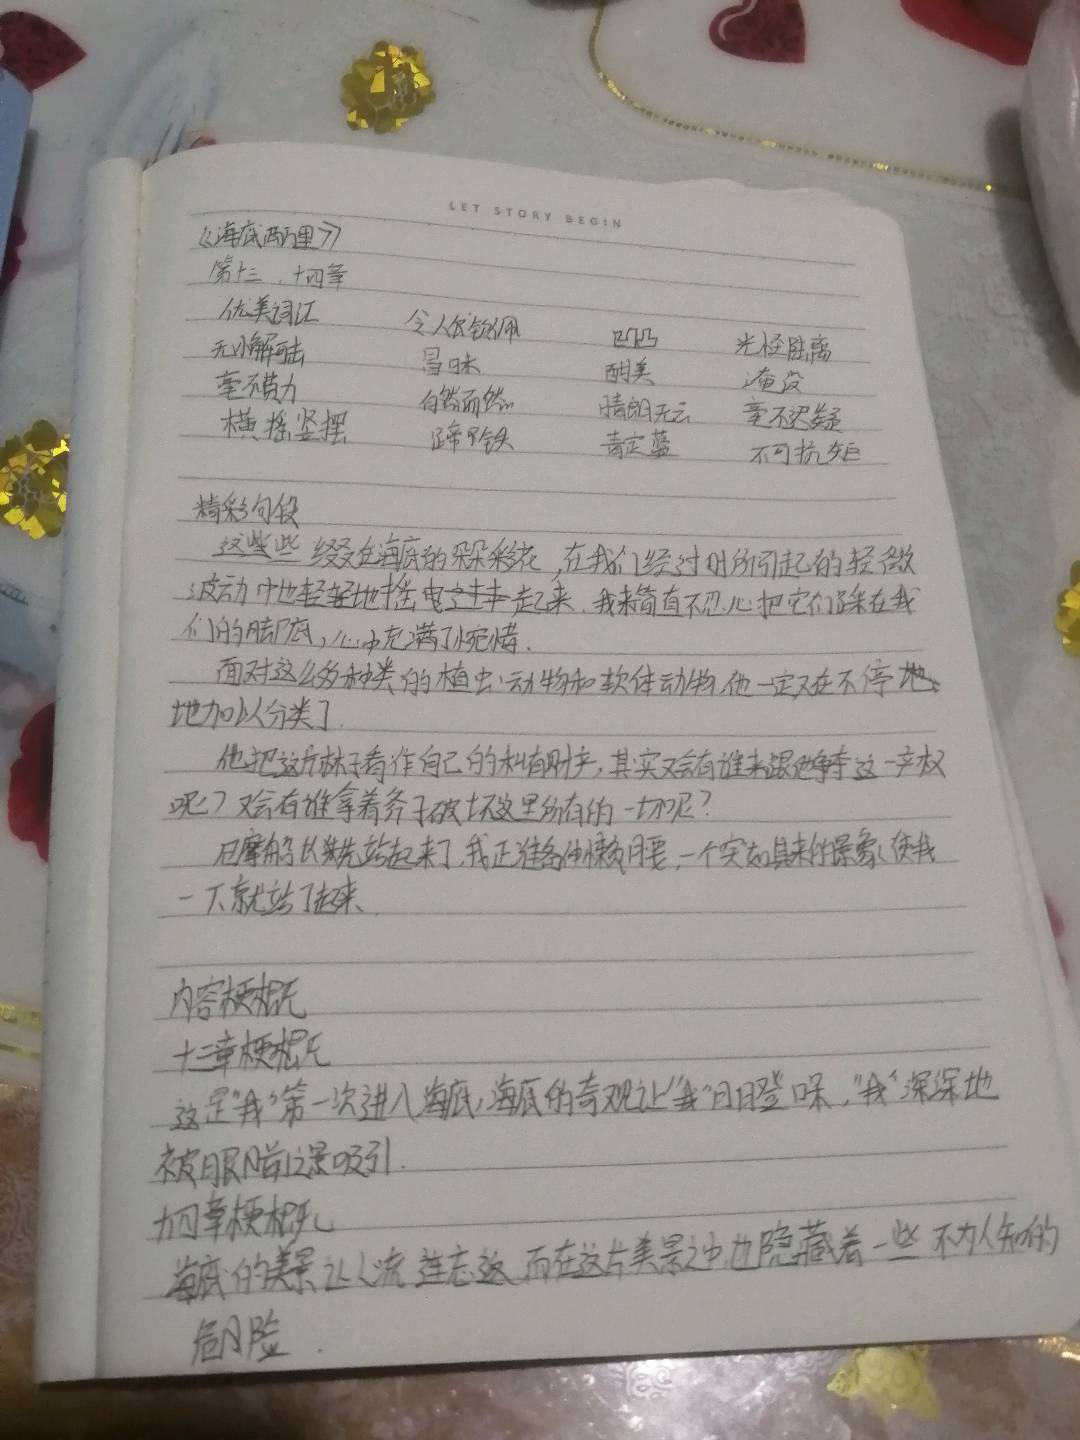 LET STORY BEGIN
《海底两万里》
第十三、十四章
优美词汇 令人钦佩 凹凸 光怪陆离
无懈可击 酣美 淹没
毫不费力 自然而然 晴朗无云 毫不迟疑
横摇竖摆 蹄甲铁 靛蓝 不可抗拒
精彩句段
这些缀在海底的朵朵彩花,在我们经过时所引起的轻微
波动中也轻轻地摇曳起来.我简直不忍心把它们踩在我
们的脚底,心中充满了惋惜.
面对这么多种类的植虫动物和软体动物,他一定又在不停地
地加以分类了.
他把这片林子看作自己的私有财产,其实又会有谁来跟他争夺这一产权
呢?又会有谁拿着斧子破坏这里所有的一切呢?
尼摩船长率先站起来了,我正准备伸懒腰,一个突如其来的景象使我
一下就站了起来.
内容梗概
十三章梗概
这是"我"第一次进入海底,海底的奇观让"我"目瞪口呆,"我"深深地
被眼前之景吸引.
十四章梗概
海底的美景让人流连忘返,而在这片美景之中,也隐藏着一些不为人知的
危险.